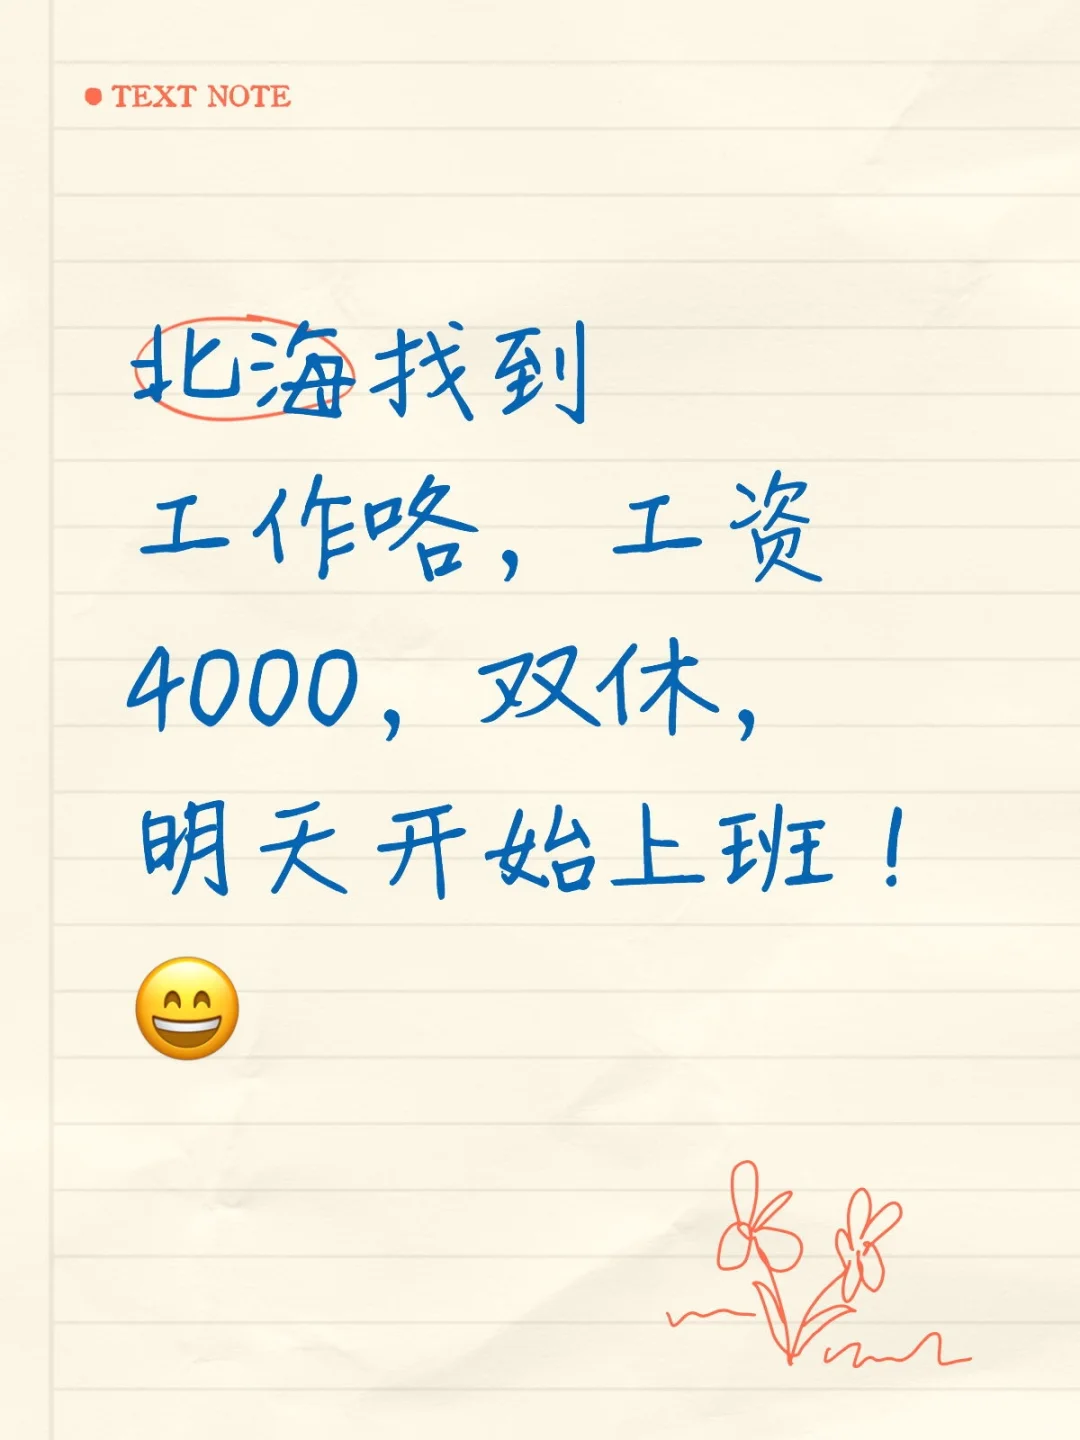 TEXT NOTE
北海找到
工作咯，工资
4000，双休，
明天开始上班！
😄